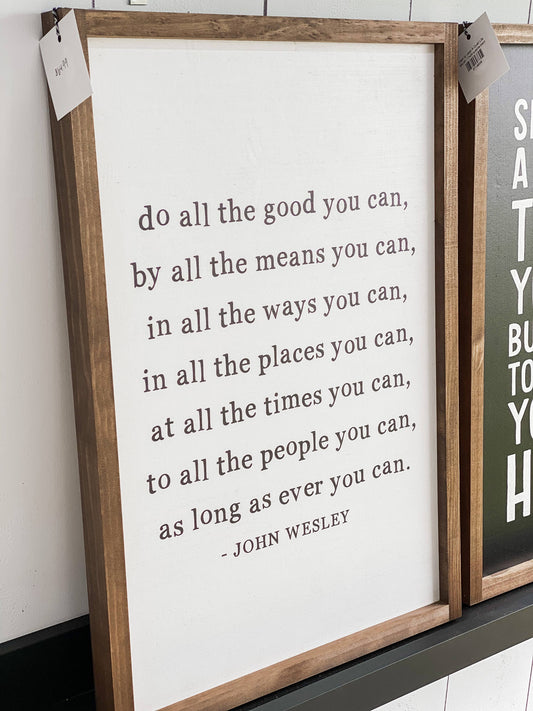 do all the good you can,
by all the means you can,
in all the ways you can,
in all the places you can,
at all the times you can,
to all the people you can,
as long as ever you can.
- JOHN WESLEY